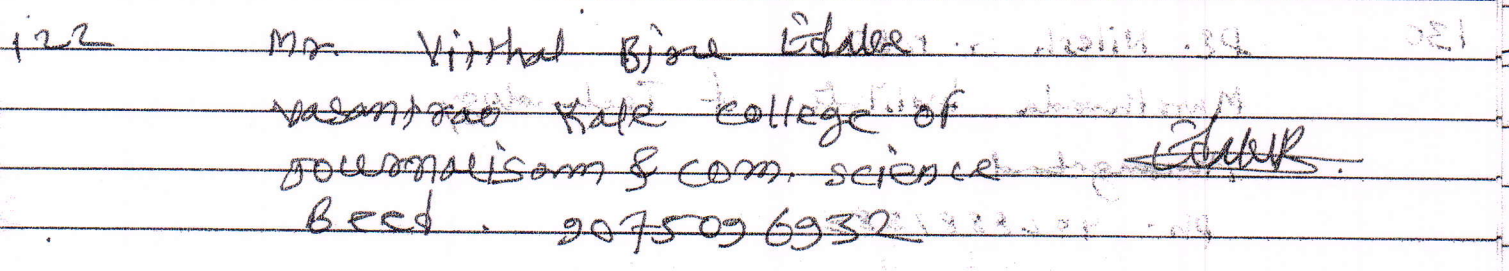 122 Mr. Vitthal Bjrue Edake
Vasantrao Kale college of
Journalisam & com. science
Beed. 9075096932